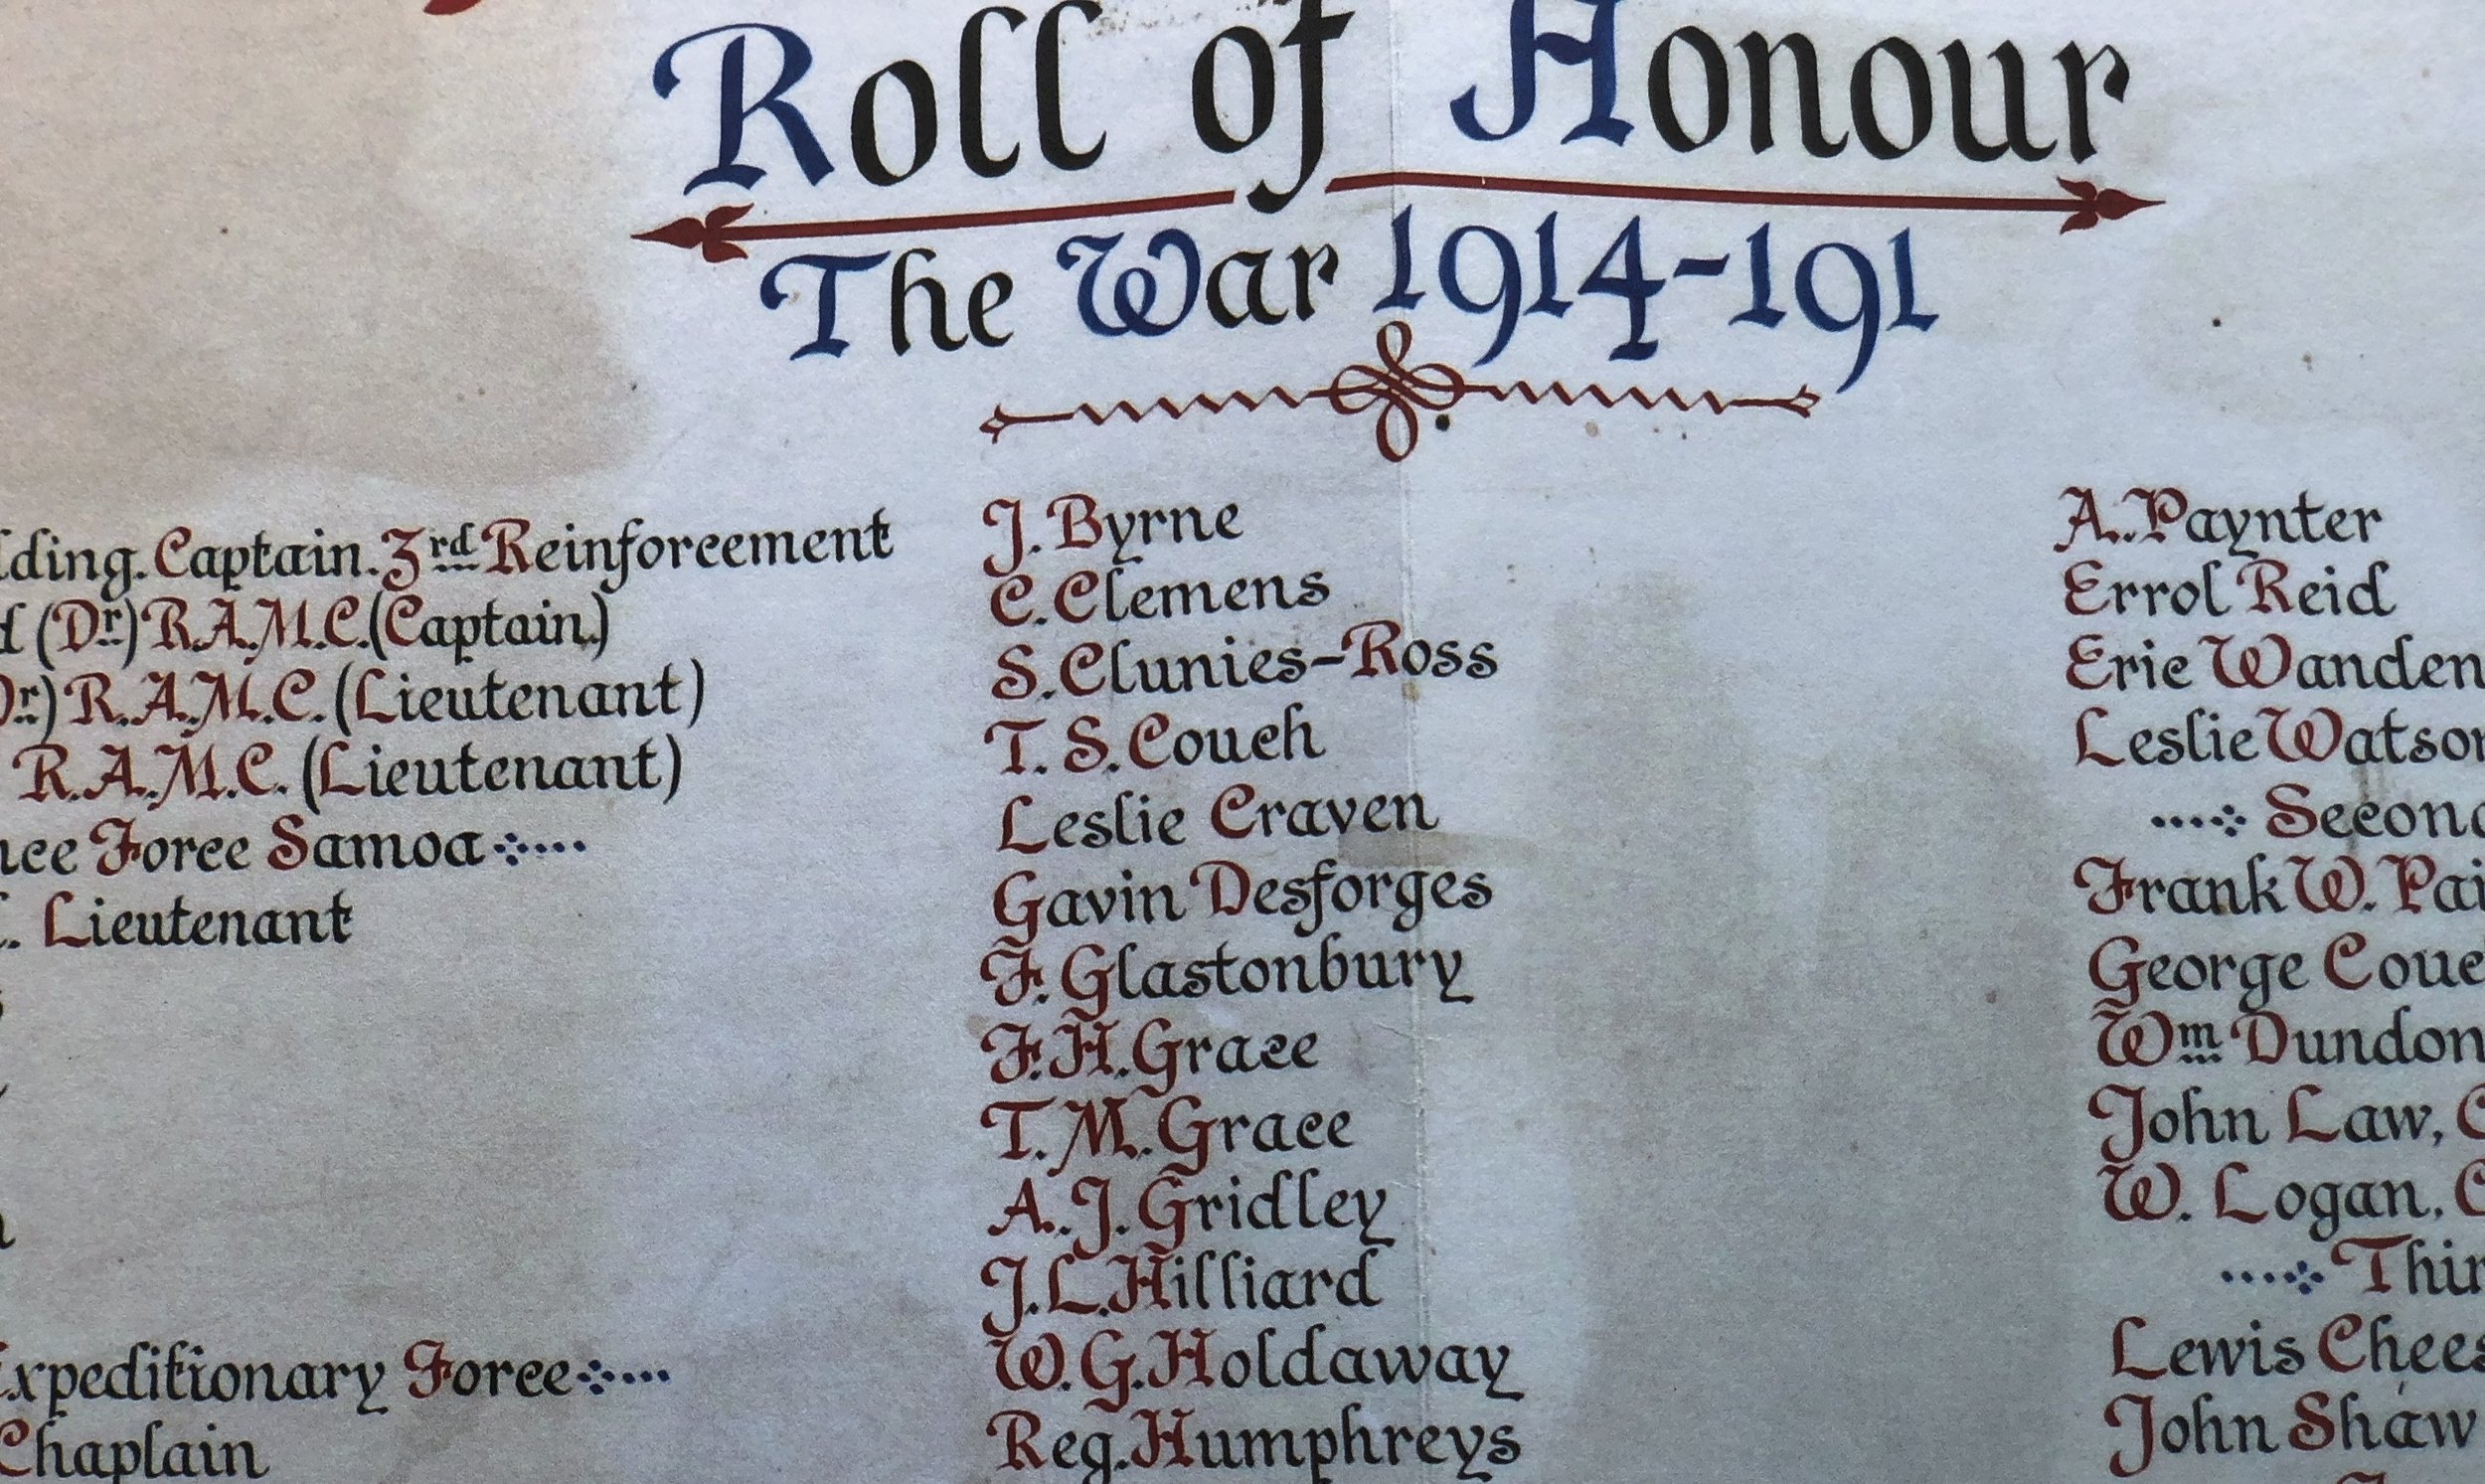 Roll of Honour
The War 1914-191
ding. Captain. 3rd Reinforcement
(Dr) R.A.M.C. (Captain.)
R.A.M.C. (Lieutenant)
R.A.M.C. (Lieutenant)
Force Samoa
Lieutenant
Expeditionary Force
Chaplain
J. Byrne
C. Clemens
S. Clunies-Ross
T. S. Couch
Leslie Craven
Gavin Desforges
F. Glastonbury
F. H. Grace
T. M. Grace
A. J. Gridley
J. L. Hilliard
W. G. Holdaway
Reg. Humphreys
A. Paynter
Errol Reid
Eric Wanden
Leslie Watson
Second
Frank W. Pai
George Couc
Wm Dundon
John Law, C
W. Logan, C
Thir
Lewis Chees
John Shaw